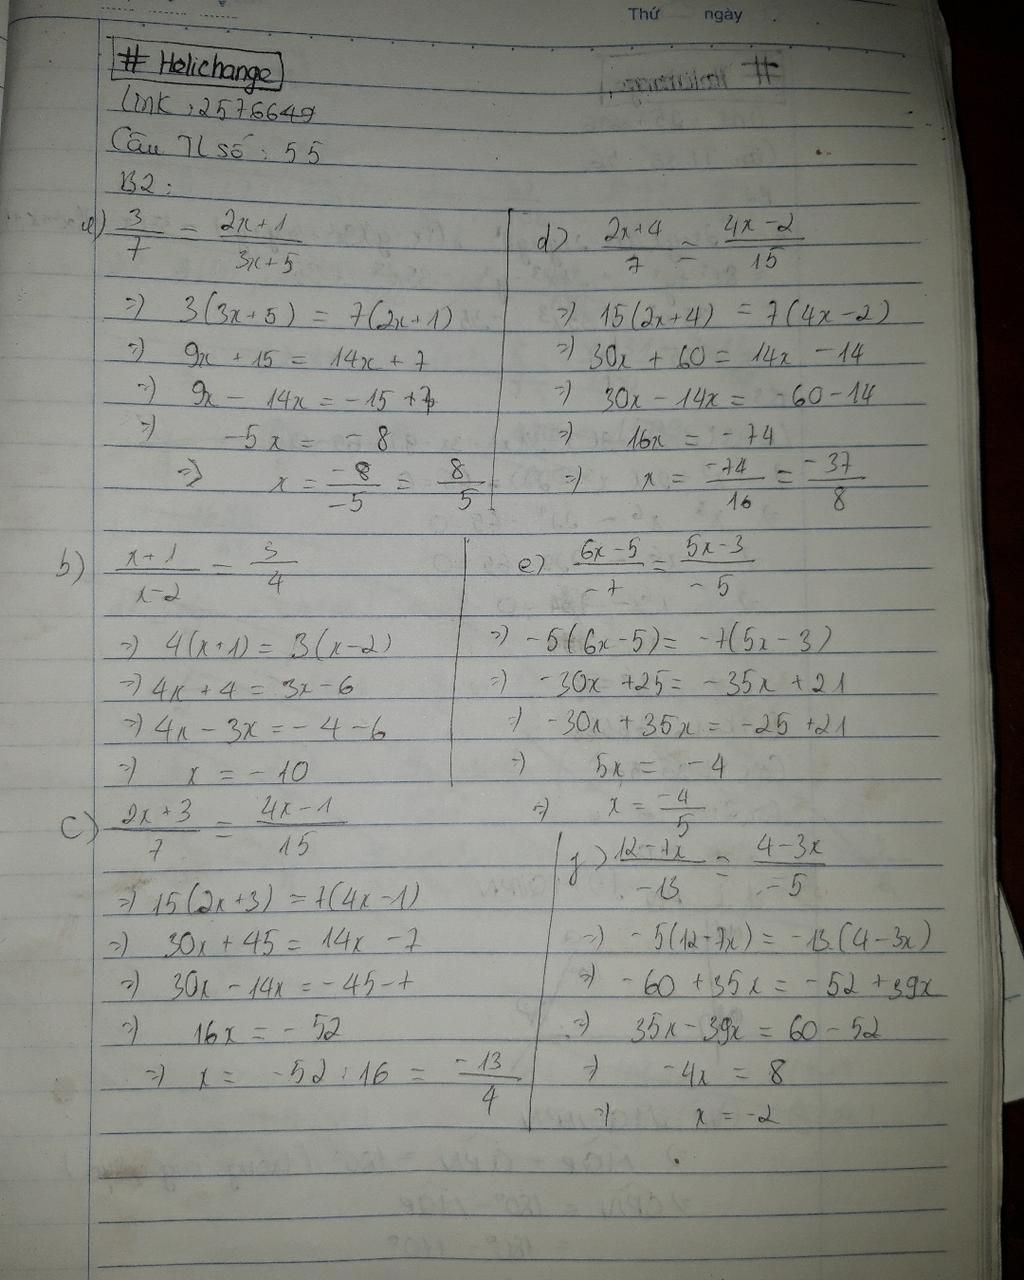 Thứ ngày
# Holichange
Link : 2576649
Câu TL số : 55
B2 :
a) 3/7 = (2x+1)/(3x+5)
=> 3(3x+5) = 7(2x+1)
=> 9x + 15 = 14x + 7
=> 9x - 14x = -15 + 7
=> -5x = -8
=> x = -8/-5 = 8/5
b) (x+1)/(x-2) = 3/4
=> 4(x+1) = 3(x-2)
=> 4x + 4 = 3x - 6
=> 4x - 3x = -4 - 6
=> x = -10
c) (2x+3)/7 = (4x-1)/15
=> 15(2x+3) = 7(4x-1)
=> 30x + 45 = 14x - 7
=> 30x - 14x = -45 - 7
=> 16x = -52
=> x = -52 : 16 = -13/4
d) (2x+4)/7 = (4x-2)/15
=> 15(2x+4) = 7(4x-2)
=> 30x + 60 = 14x - 14
=> 30x - 14x = -60 - 14
=> 16x = -74
=> x = -74/16 = -37/8
e) (6x-5)/-7 = (5x-3)/-5
=> -5(6x-5) = -7(5x-3)
=> -30x + 25 = -35x + 21
=> -30x + 35x = -25 + 21
=> 5x = -4
=> x = -4/5
f) (12-7x)/-13 = (4-3x)/-5
=> -5(12-7x) = -13.(4-3x)
=> -60 + 35x = -52 + 39x
=> 35x - 39x = 60 - 52
=> -4x = 8
=> x = -2